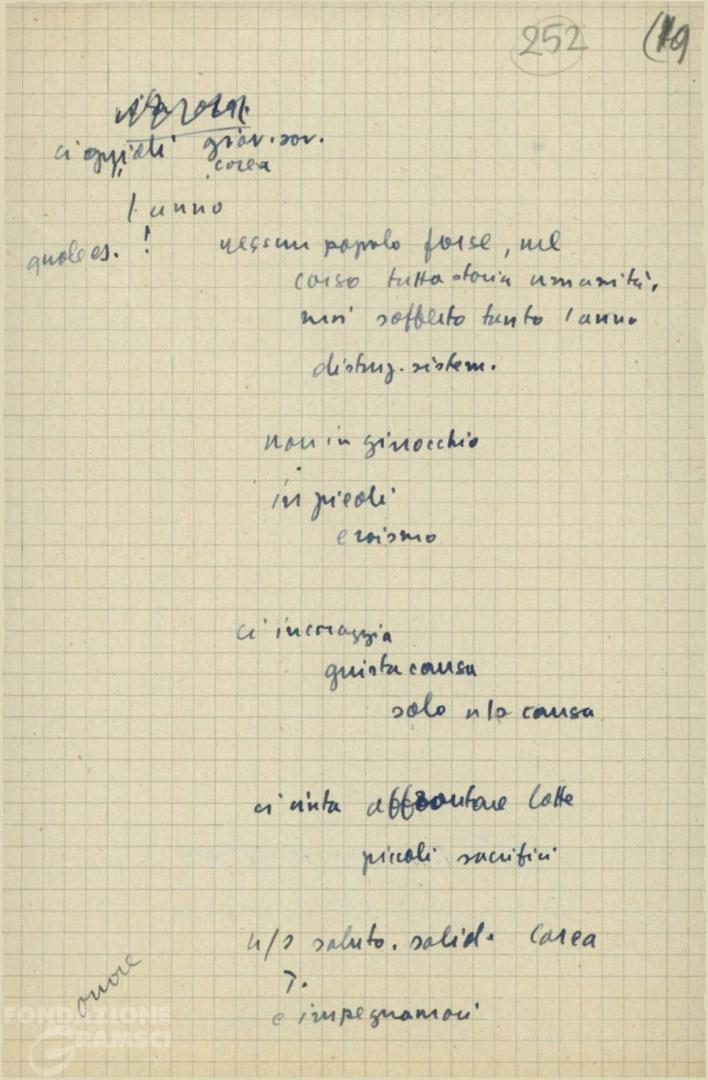 252 19
ci giov. sov.
corea
1 anno
quale es. ! nessun popolo forse, nel
corso tutta storia umanità,
mai sofferto tanto 1 anno
distruz. sistem.
non in ginocchio
in piedi
eroismo
ci incoraggia
giusta causa
solo n/s causa
ci aiuta affrontare lotte
piccoli sacrifici
n/s saluto. solid. Corea
e impegnamoci
onore
FONDAZIONE
GRAMSCI